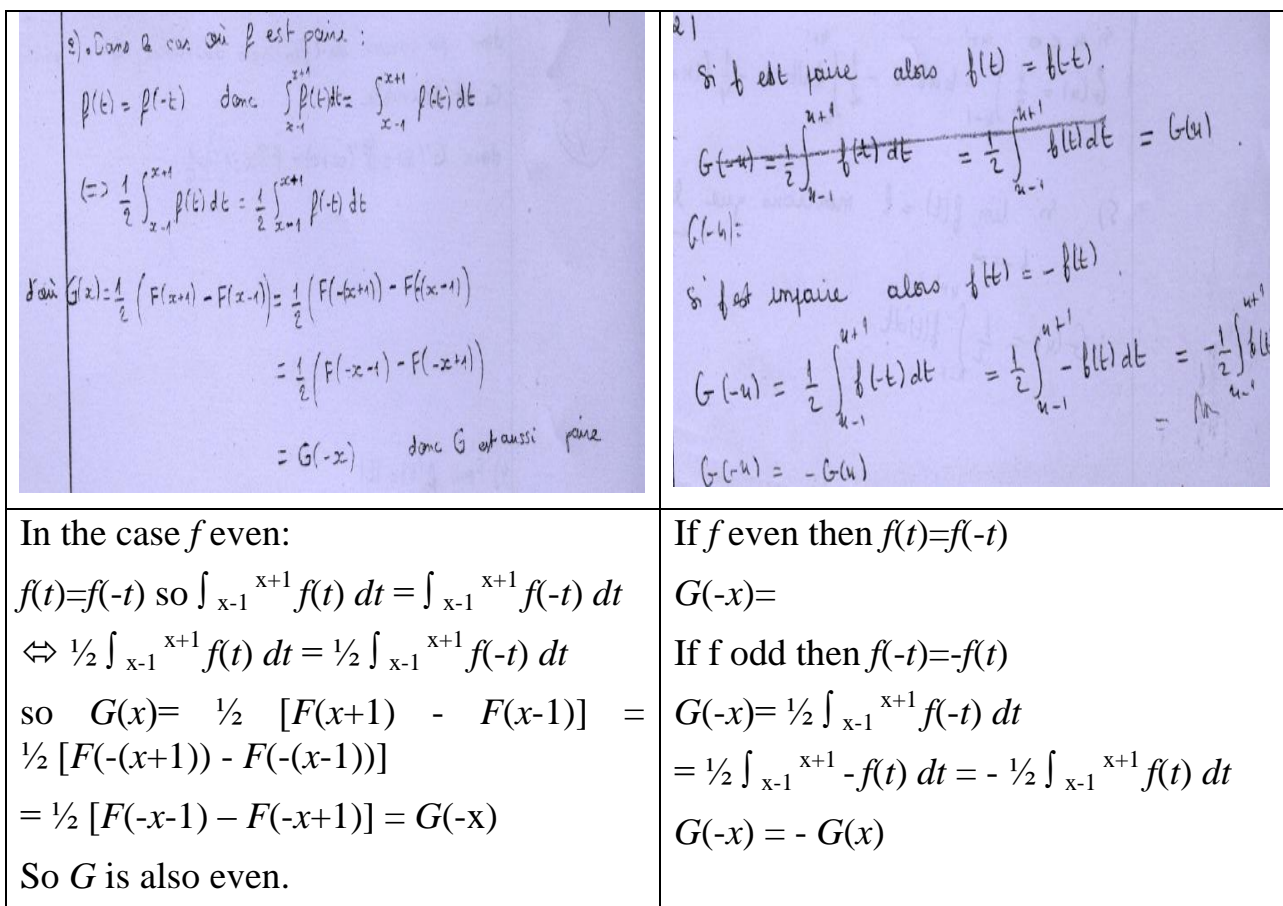 2). Dans le cas où f est paire :
f(t) = f(-t) donc ∫_{x-1}^{x+1} f(t)dt = ∫_{x-1}^{x+1} f(-t) dt
(=> 1/2 ∫_{x-1}^{x+1} f(t) dt = 1/2 ∫_{x-1}^{x+1} f(-t) dt
d'où G(x) = 1/2 (F(x+1) - F(x-1)) = 1/2 (F(-(x+1)) - F(-(x-1))
= 1/2 (F(-x-1) - F(-x+1))
= G(-x) donc G est aussi paire
2)
Si f est paire alors f(t) = f(-t).
G(-x) = 1/2 ∫_{x-1}^{x+1} f(t) dt = 1/2 ∫_{x-1}^{x+1} f(t) dt = G(x).
G(-x) =
Si f est impaire alors f(t) = - f(t).
G(-x) = 1/2 ∫_{x-1}^{x+1} f(-t) dt = 1/2 ∫_{x-1}^{x+1} - f(t) dt = -1/2 ∫_{x-1}^{x+1} f(t
=
G(-x) = - G(x)
In the case f even:
f(t)=f(-t) so ∫ x-1 x+1 f(t) dt = ∫ x-1 x+1 f(-t) dt
⇔ ½ ∫ x-1 x+1 f(t) dt = ½ ∫ x-1 x+1 f(-t) dt
so G(x)= ½ [F(x+1) - F(x-1)] =
½ [F(-(x+1)) - F(-(x-1))]
= ½ [F(-x-1) – F(-x+1)] = G(-x)
So G is also even.
If f even then f(t)=f(-t)
G(-x)=
If f odd then f(-t)=-f(t)
G(-x)= ½ ∫ x-1 x+1 f(-t) dt
= ½ ∫ x-1 x+1 -f(t) dt = - ½ ∫ x-1 x+1 f(t) dt
G(-x) = - G(x)